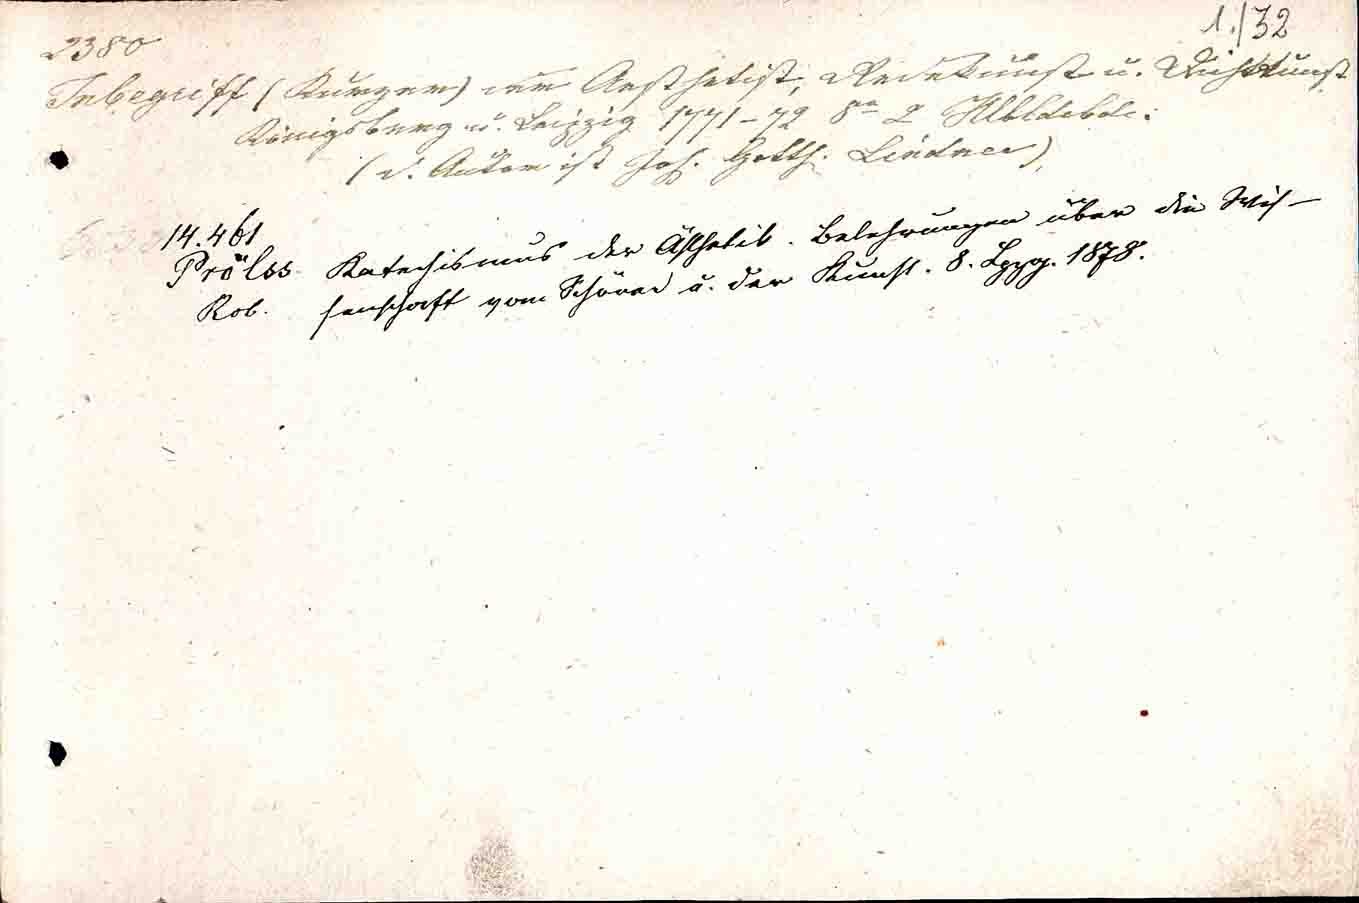 1./32
2380
Inbegriff (Kurzer) der Aesthetik, Redekunst u. Dichtkunst
Königsberg u. Leipzig 1771-72 8° 2 Hlbldrbde.
(d. Autor ist Joh. Gotth. Lindner)
14.461
Prölss Katechismus der Ästhetik. Belehrungen über die Wis-
Rob. senschaft vom Schönen u. der Kunst. 8. Lpzg. 1878.